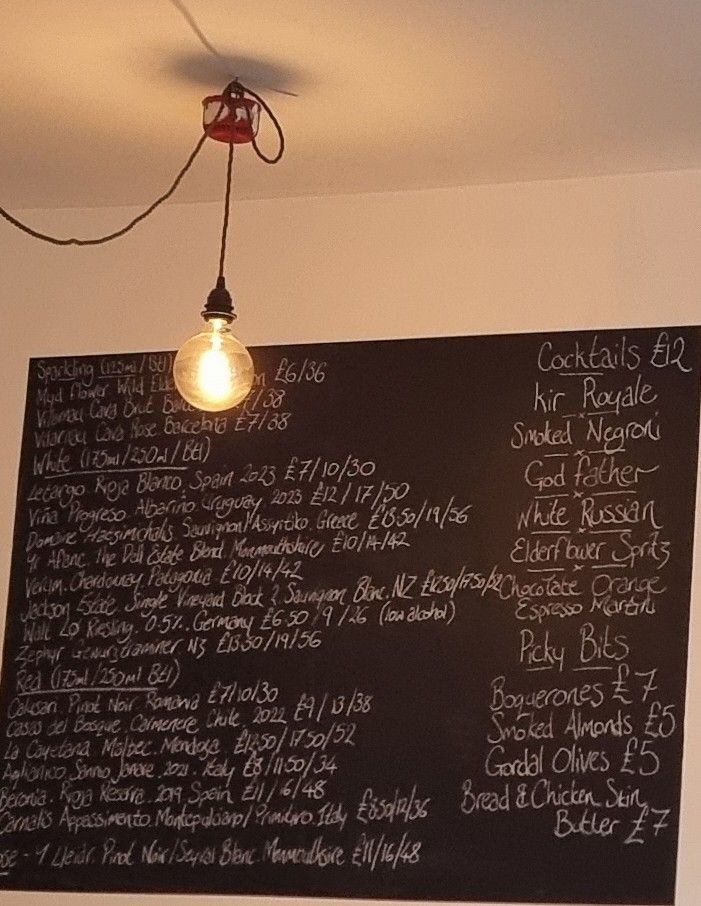 Sparkling (125ml/Btl)
Myd Flower Wild £6/36
Vilarnau Cava Brut /38
Vilarnau Cava Rose Barcelona £7/38
White (175ml/250ml/Btl)
Letargo. Rioja Blanco. Spain 2023 £7/10/30
Viña Progreso. Albarino. Uruguay 2023 £12/17/50
Domaine Sauvignon/Assyrtiko. Greece £13.50/19/56
Yr Afanc. The Dell Estate Blend. Monmouthshire £10/14/42
Verum. Chardonnay Patagonia £10/14/42
Jackson Estate Single Vineyard Block 2 Sauvignon Blanc. NZ £12.50/17.50/52
Lo Riesling. 0.5%. Germany £6.50/9/26 (low alcohol)
Zephyr Gewurztraminer NZ £13.50/19/56
Red (175ml/250ml Btl)
Calusari Pinot Noir. Romania £7/10/30
Casas del Bosque. Carmenere Chile. 2022 £9/13/38
La Cayetana Malbec. Mendoza. £12.50/17.50/52
Aglianico. Sannio, Janare. 2021. Italy £8/11.50/34
Beronia. Rioja Reserva. 2019 Spain £11/16/48
Appassimento. Montepulciano/Primitivo. Italy £8.50/12/36
ose - Y Lleidr. Pinot Noir/Seyval Blanc. Monmouthshire £11/16/48
Cocktails £12
Kir Royale
Smoked Negroni
Godfather
White Russian
Elderflower Spritz
Chocolate Orange
Espresso Martini
Picky Bits
Boquerones £7
Smoked Almonds £5
Gordal Olives £5
Bread & Chicken Skin
Butter £7